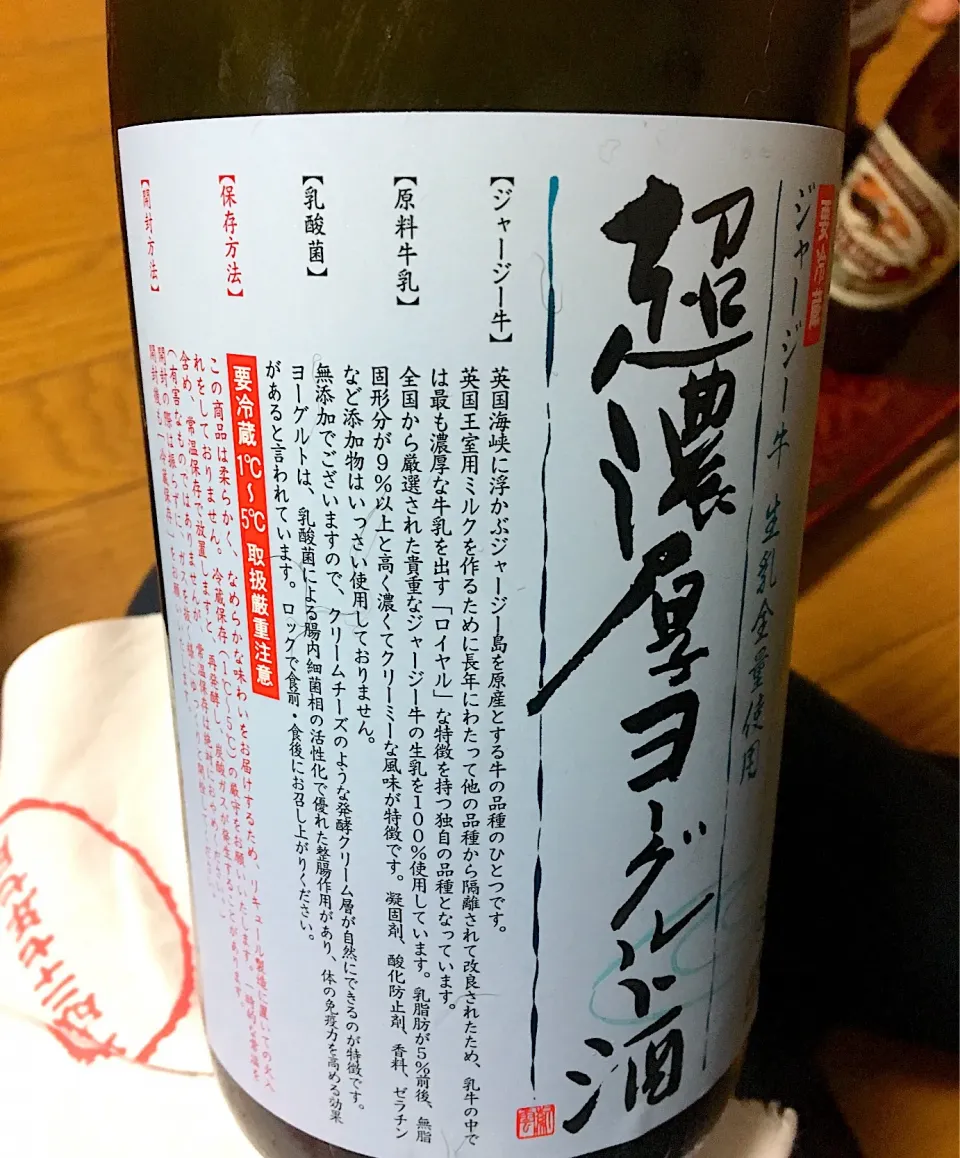 要冷蔵
ジャージー牛 生乳全量使用
超濃厚ヨーグルト酒
【ジャージー牛】
英国海峡に浮かぶジャージー島を原産とする牛の品種のひとつです。
英国王室用ミルクを作るために長年にわたって他の品種から隔離されて改良されたため、乳牛の中で
は最も濃厚な牛乳を出す「ロイヤル」な特徴を持つ独自の品種となっています。
【原料牛乳】
全国から厳選された貴重なジャージー牛の生乳を100%使用しています。乳脂肪が5%前後、無脂
固形分が9%以上と高く濃くてクリーミーな風味が特徴です。凝固剤、酸化防止剤、香料、ゼラチン
など添加物はいっさい使用しておりません。
無添加でございますので、クリームチーズのような発酵クリーム層が自然にできるのが特徴です。
【乳酸菌】
ヨーグルトは、乳酸菌による腸内細菌相の活性化で優れた整腸作用があり、体の免疫力を高める効果
があると言われています。ロックで食前・食後にお召し上がりください。
【保存方法】
要冷蔵1℃〜5℃ 取扱厳重注意
この商品は柔らかく、なめらかな味わいをお届けするため、リキュール製造に置いての火入
れをしておりません。冷蔵保存(1℃〜5℃)の厳守をお願いいたします。一時的な常温を
含め、常温保存で放置しますと、再発酵し、炭酸ガスが発生することがあります。
(有害なものではありませんが、常温保存は絶対におやめください。)
【開封方法】
開封の際は振らずに、ガスを抜く様にゆっくりと開栓して
開封後も「冷蔵保存」をお願いいたします。